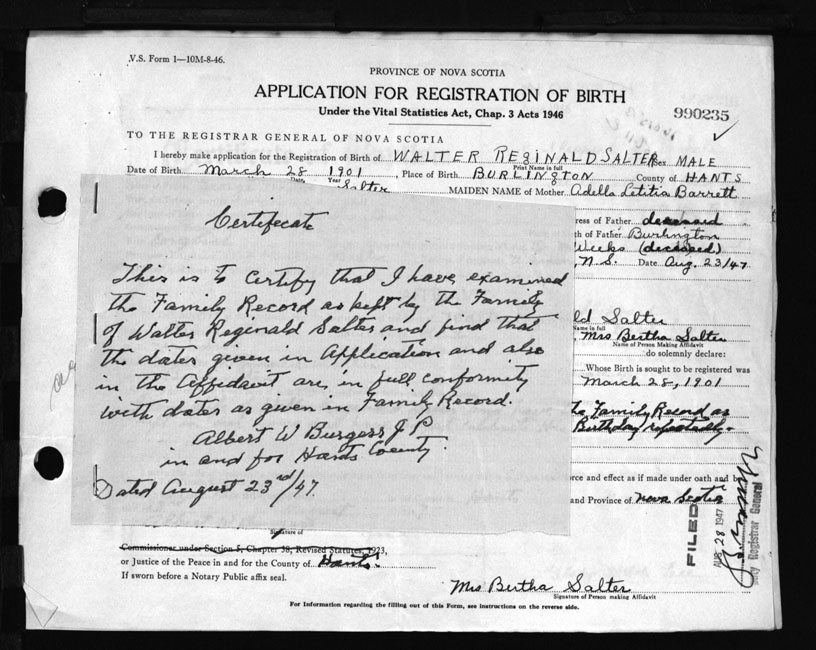 V.S. Form 1—10M-8-46.
PROVINCE OF NOVA SCOTIA
APPLICATION FOR REGISTRATION OF BIRTH
Under the Vital Statistics Act, Chap. 3 Acts 1946
990235
TO THE REGISTRAR GENERAL OF NOVA SCOTIA
I hereby make application for the Registration of Birth of WALTER REGINALD SALTER Sex MALE
Print Name in full
Date of Birth March 28 1901, Place of Birth BURLINGTON County of HANTS
Date, Year
Salter MAIDEN NAME of Mother Adella Letitia Barrett
ress of Father deceased
th of Father Burlington
Weeks (deceased)
N.S. Date Aug. 23/47
Certifecate
This is to Certify that I have examined
the Family Record as kept by the Family
of Walter Reginald Salter and find that
the dates given in Application and also
in the Affidavit are in full conformity
with dates as given in Family Record.
Albert W Burgess J P
in and for Hants County
Dated August 23rd/47.
ld Salter
Name in full
Mrs Bertha Salter
Name of Person Making Affidavit
do solemnly declare:
Whose Birth is sought to be registered was
March 28, 1901
the Family Record as
Birthday repeatedly-
orce and effect as if made under oath and
and Province of Nova Scotia
FILED
AUG 28 1947
Registrar General
Signature of
Commissioner under Section 5, Chapter 38, Revised Statutes, 1923,
or Justice of the Peace in and for the County of Hants.
If sworn before a Notary Public affix seal.
Mrs Bertha Salter
Signature of Person making Affidavit
For Information regarding the filling out of this Form, see instructions on the reverse side.